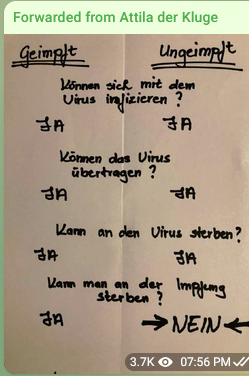 Forwarded from Attila der Kluge
Geimpft Ungeimpft
Können sich mit dem
Virus infizieren?
JA JA
Können das Virus
übertragen?
JA JA
Kann an den Virus sterben?
JA JA
Kann man an der Impfung
sterben?
JA → NEIN ←
3.7K 07:56 PM